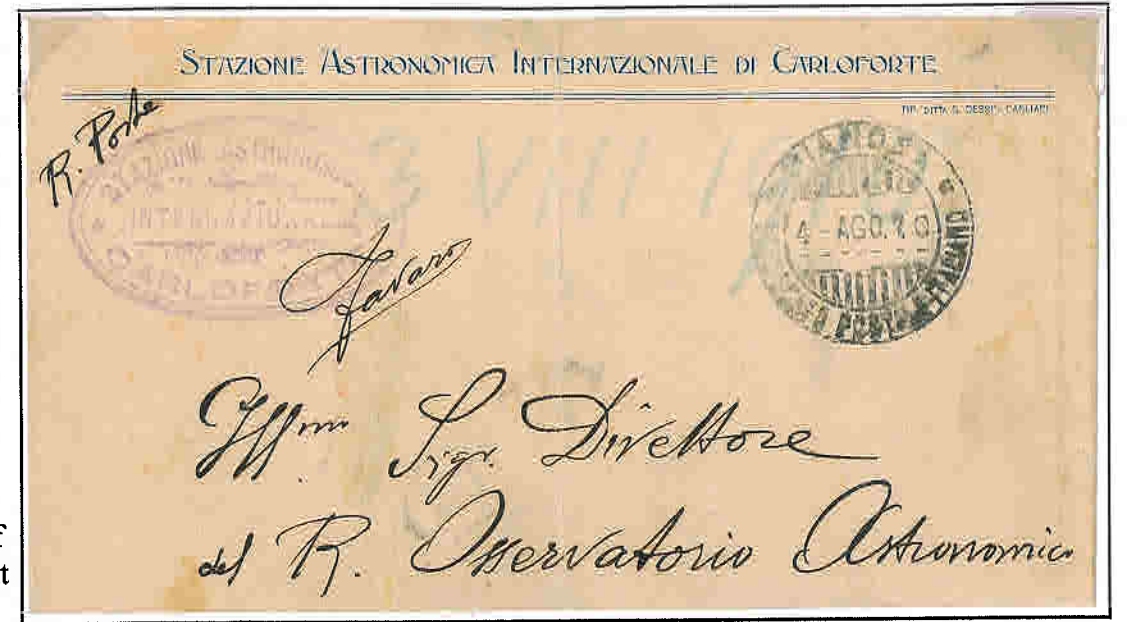 STAZIONE ASTRONOMICA INTERNAZIONALE DI CARLOFORTE
TIP. DITTA G. DESSI - CAGLIARI
R. Poste
STAZIONE ASTRONOMICA
INTERNAZIONALE
CARLOFORTE
3 VIII 1
4 - AGO.
Favaro
Illmo Sigr. Direttore
del R. Osservatorio Astronomico
f
t